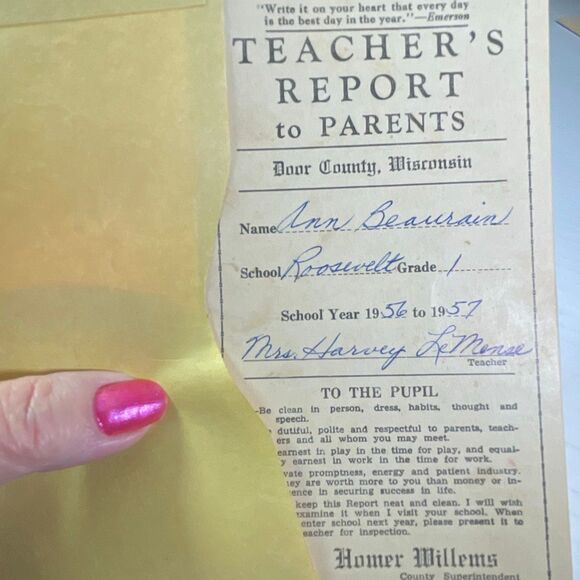 "Write it on your heart that every day
is the best day in the year."—Emerson
TEACHER'S
REPORT
to PARENTS
Door County, Wisconsin
Name Ann Beaurain
School Roosevelt Grade 1
School Year 1956 to 1957
Mrs. Harvey LeMense
Teacher
TO THE PUPIL
Be clean in person, dress, habits, thought and
speech.
dutiful, polite and respectful to parents, teach-
ers and all whom you may meet.
earnest in play in the time for play, and equal-
y earnest in work in the time for work.
vate promptness, energy and patient industry.
hey are worth more to you than money or in-
ence in securing success in life.
keep this Report neat and clean. I will wish
examine it when I visit your school. When
enter school next year, please present it to
eacher for inspection.
Homer Willems
County Superintendent